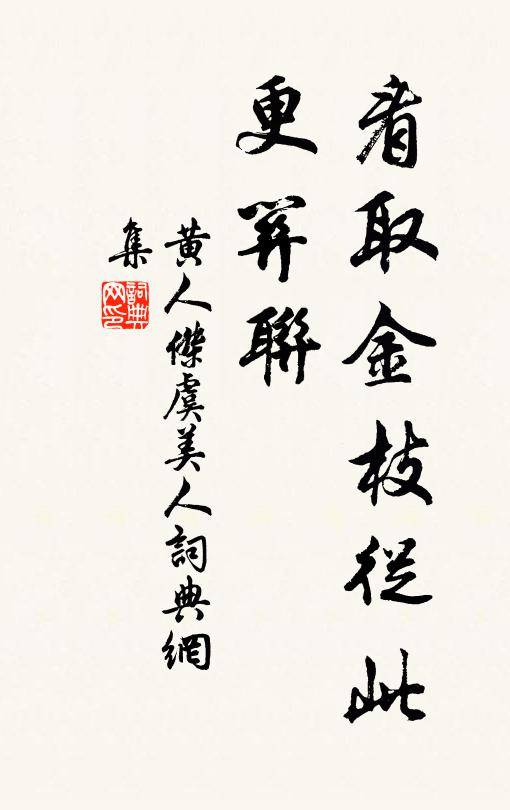 看取金枝從此
更羿聯
黄人傑虞美人詞典網
集
詞典
网印